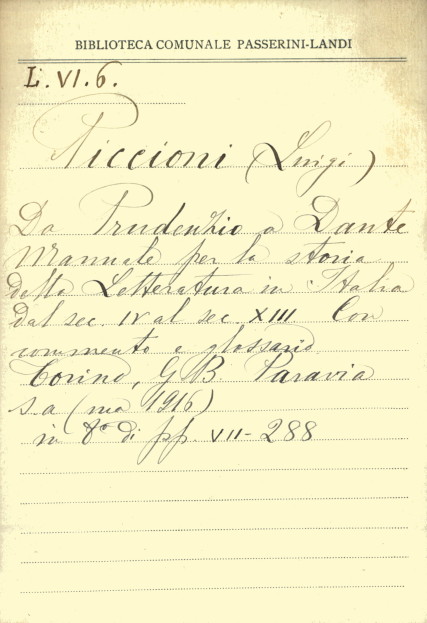 BIBLIOTECA COMUNALE PASSERINI-LANDI
L. VI. 6.
Piccioni (Luigi)
Da Prudenzio a Dante
Manuale per la storia
della Letteratura in Italia
dal sec. IV al sec. XIII Con
commento e glossario
Torino, G B. Paravia
s. a (ma 1916)
in 8° di pp. VII-288